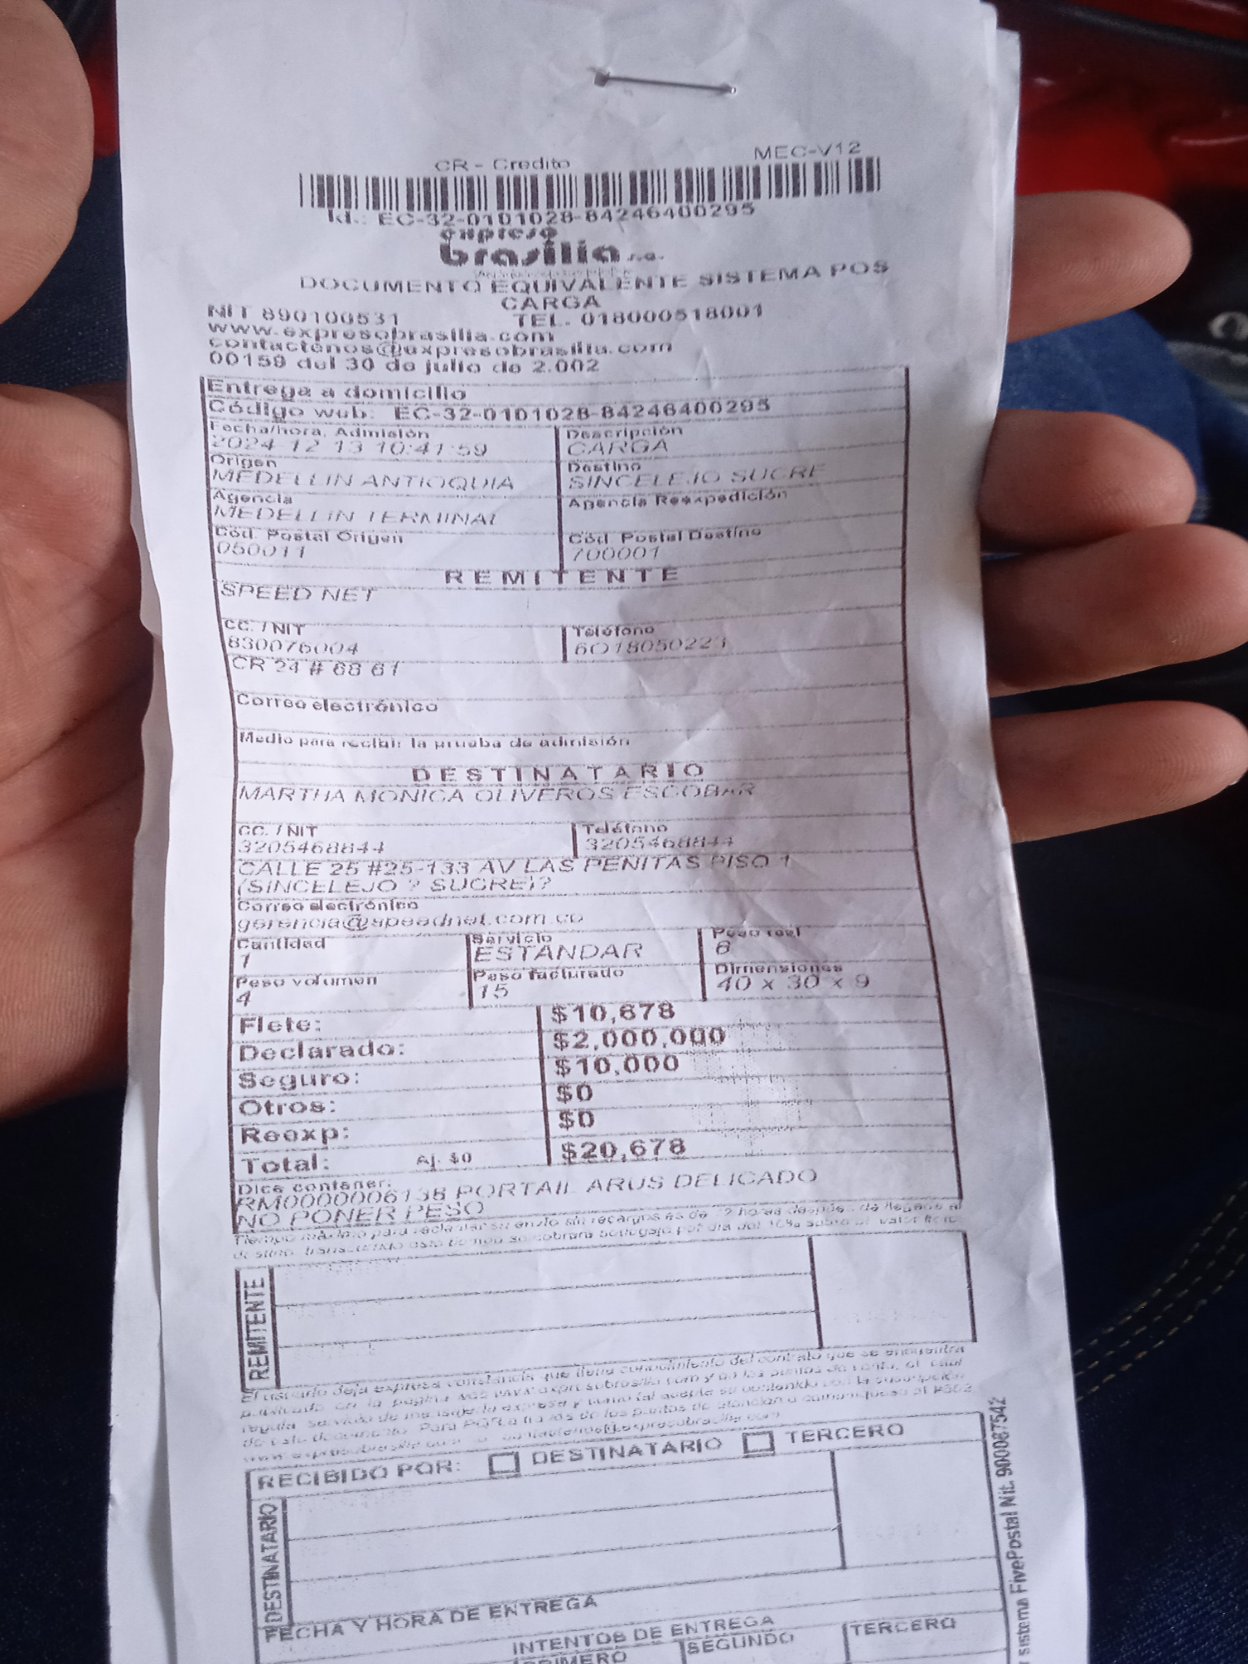 CR - Credito MEC-V12
Id.: EC-32-0101028-84246400295
expreso
brasilia s.a.
DOCUMENTO EQUIVALENTE SISTEMA POS
CARGA
NIT 890100531 TEL. 018000518001
www.expresobrasilia.com
contactenos@expresobrasilia.com
00159 del 30 de julio de 2.002
Entrega a domicilio
Código web: EC-32-0101028-84246400295
Fecha/hora. Admisión Descripción
2024-12-13 10:41:59 CARGA
Origen Destino
MEDELLIN ANTIOQUIA SINCELEJO SUCRE
Agencia Agencia Reexpedición
MEDELLIN TERMINAL
Cód. Postal Origen Cód. Postal Destino
050011 700001
REMITENTE
SPEED NET
CC. / NIT Teléfono
830076004 6018050221
CR 24 # 68 61
Correo electrónico
Medio para recibir la prueba de admisión
DESTINATARIO
MARTHA MONICA OLIVEROS ESCOBAR
CC. / NIT Teléfono
3205468844 3205468844
CALLE 25 #25-133 AV LAS PENITAS PISO 1
(SINCELEJO ? SUCRE)?
Correo electrónico
gerencia@speednet.com.co
Cantidad Servicio Peso real
1 ESTANDAR 6
Peso volumen Peso facturado Dimensiones
4 15 40 x 30 x 9
Flete: $10,678
Declarado: $2,000,000
Seguro: $10,000
Otros: $0
Reexp: $0
Total: Aj. $0 $20,678
Dice contener:
RM0000006138 PORTAIL ARUS DELICADO
NO PONER PESO
Tiempo máximo para reclamar su envío sin recargos es de 72 horas después de llegado al
destino, transcurrido este tiempo se cobrará bodegaje por día del 10% sobre el valor flete
REMITENTE
El usuario deja expresa constancia que tiene conocimiento del contrato que se encuentra
publicado en la página
RECIBIDO POR: DESTINATARIO TERCERO
DESTINATARIO
FECHA Y HORA DE ENTREGA
INTENTOS DE ENTREGA
PRIMERO SEGUNDO TERCERO
sistema FivePostal Nit. 900087542